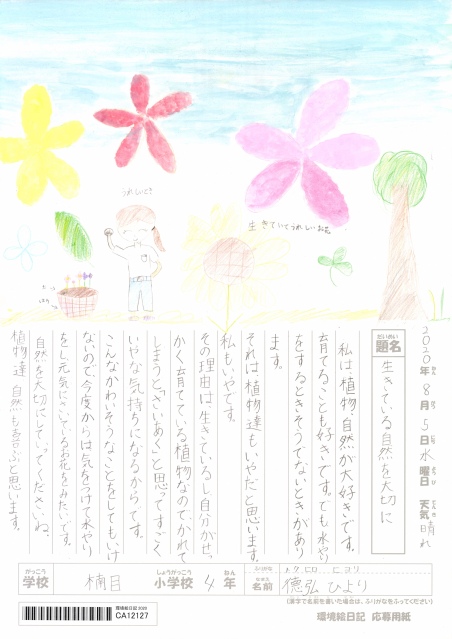 2020年 8月 5日 水曜日 天気 晴れ
ねん
がつ
にち
ようび
てんき
だいめい
題名
生きている自然を大切に
私は植物、自然が大好きです。
育てることも好きです。でも水やり
をするときそうでないときがあり
ます。
それは植物達もいやだと思います。
私もいやです。
その理由は生きているし自分がせっ
かく育てている植物なのでかれて
しまうと「さいあく」と思ってすごく
いやな気持ちになるからです。
こんなかわいそうなことをしてもいけ
ないので今度からは気をつけて水やり
をし元気にさいているお花をみたいです。
自然を大切にしていってくださいね。
植物達 自然も喜ぶと思います。
うれしいとき
生きていてうれしいお花
がっこう
学校
楠目
しょうがっこう
小学校
4
ねん
年
ふりがな
トクヒロ ヒヨリ
なまえ
名前
德弘 ひより
(漢字で名前を書いた場合は、ふりがなをふってください)
環境絵日記 2020
CA12127
環境絵日記 応募用紙